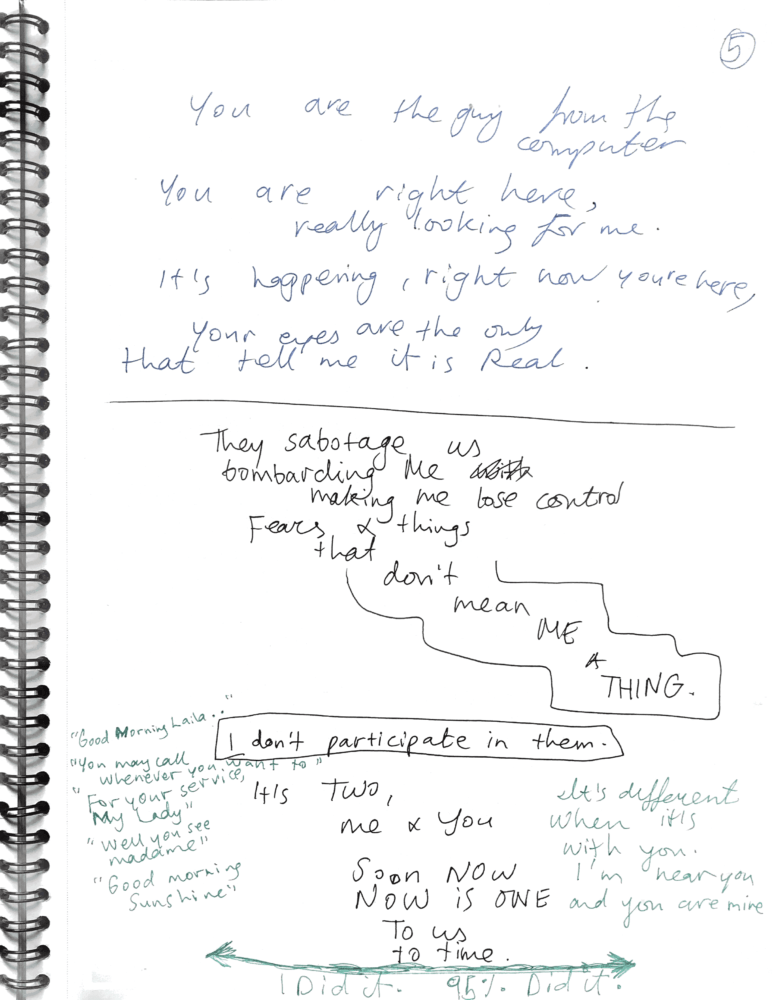 5
You are the guy from the
computer
You are right here,
really looking for me.
It's happening, right now you're here,
your eyes are the only
that tell me it is Real.
They sabotage us
bombarding Me
making me lose control
Fears & things
that
don't
mean
ME
A
THING.
I don't participate in them.
"Good Morning Laila.."
"You may call
whenever you want to"
"For your service,
My Lady"
"Well you see
madame"
"Good morning
Sunshine"
It's Two,
me & You
Soon NOW
NOW is ONE
To us
to time.
It's different
when it's
with you.
I'm near you
and you are mine
I Did it. 95% Did it.